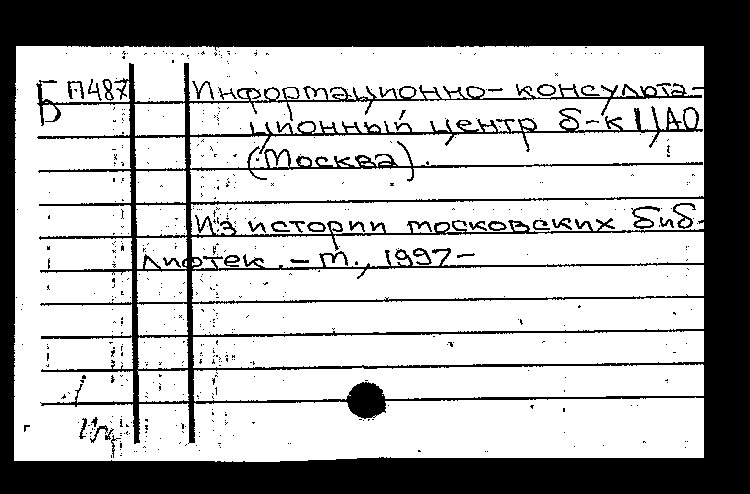 Б П487 Информационно-консульта-
ционный центр б-к ЦАО
(Москва).
Из истории московских биб-
лиотек. - М., 1997-